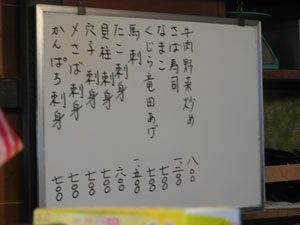 牛肉野菜炒め 八〇〇
さば寿司 一、二〇〇
なまこ 七〇〇
くじら竜田あげ 七〇〇
馬刺 一、五〇〇
たこ刺身 六〇〇
貝柱刺身 七〇〇
穴子刺身 七〇〇
〆さば刺身 七〇〇
かんぱち刺身 七〇〇